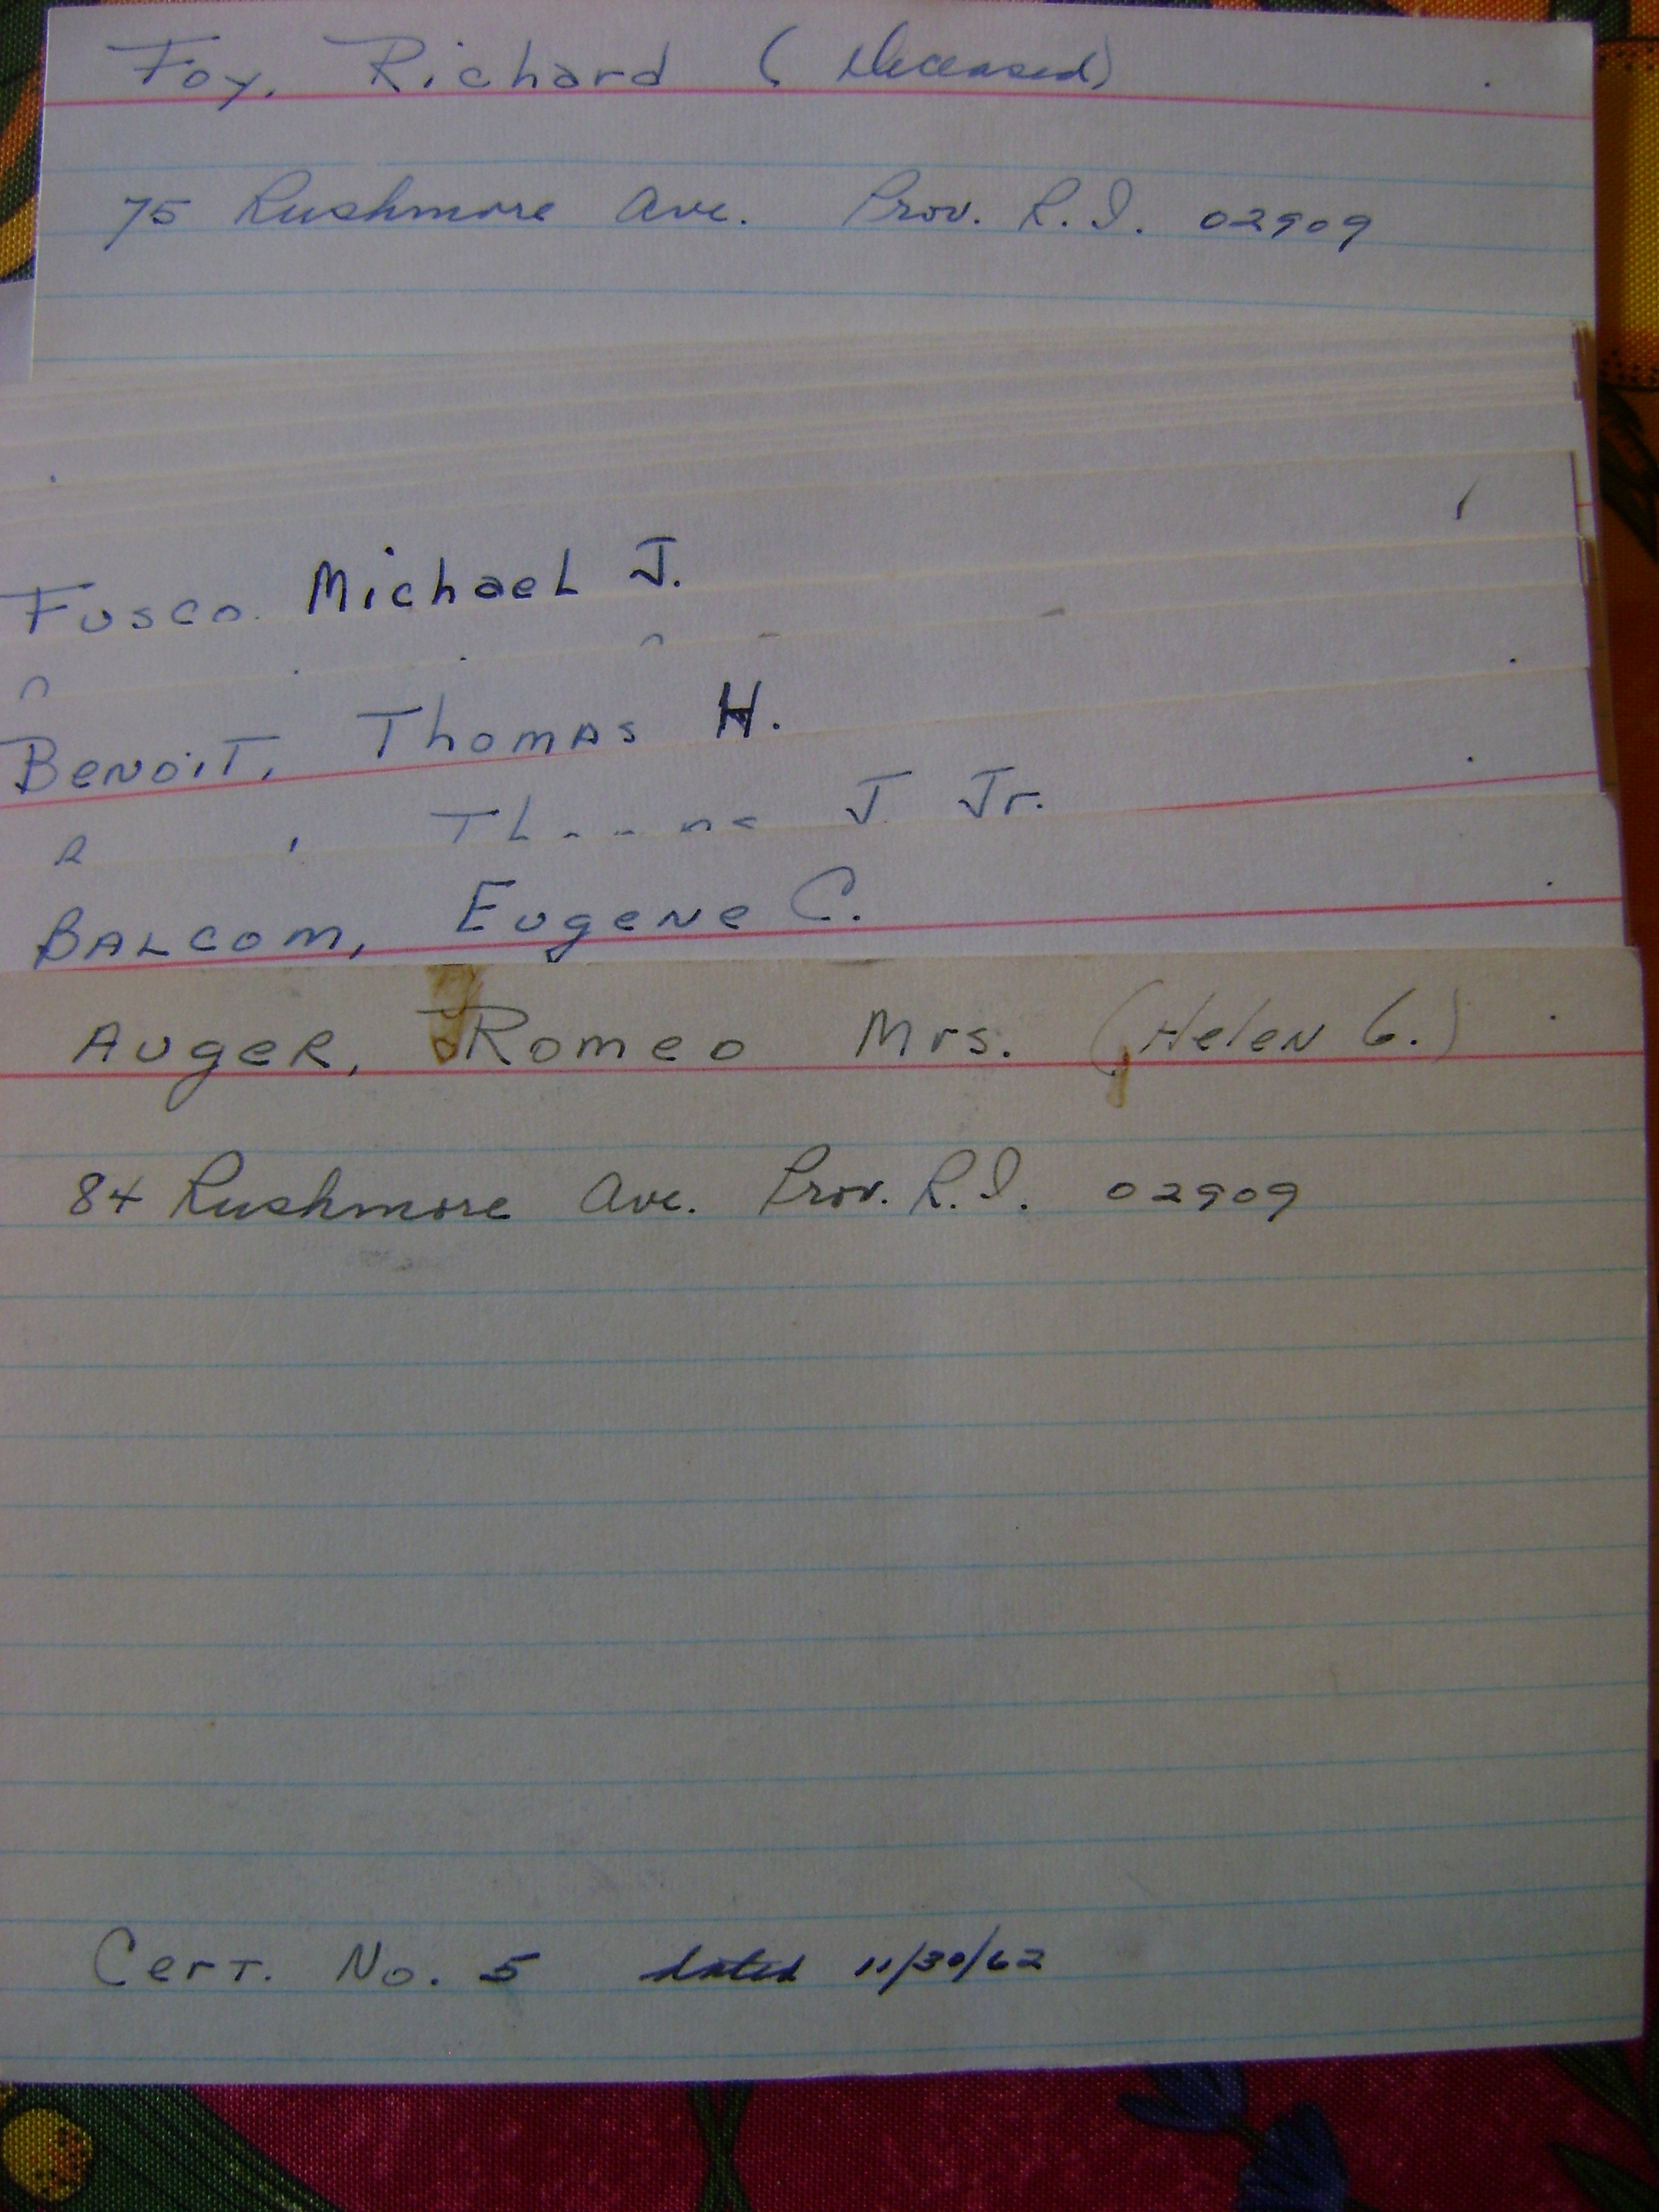 Foy, Richard (Deceased)
75 Rushmore Ave. Prov. R.I. 02909
Fusco. Michael J.
Benoit, Thomas H.
J. Jr.
BALCOM, Eugene C.
AUgeR, Romeo Mrs. (Helen G.)
84 Rushmore Ave. Prov. R.I. 02909
Cert. No. 5 dated 11/30/62